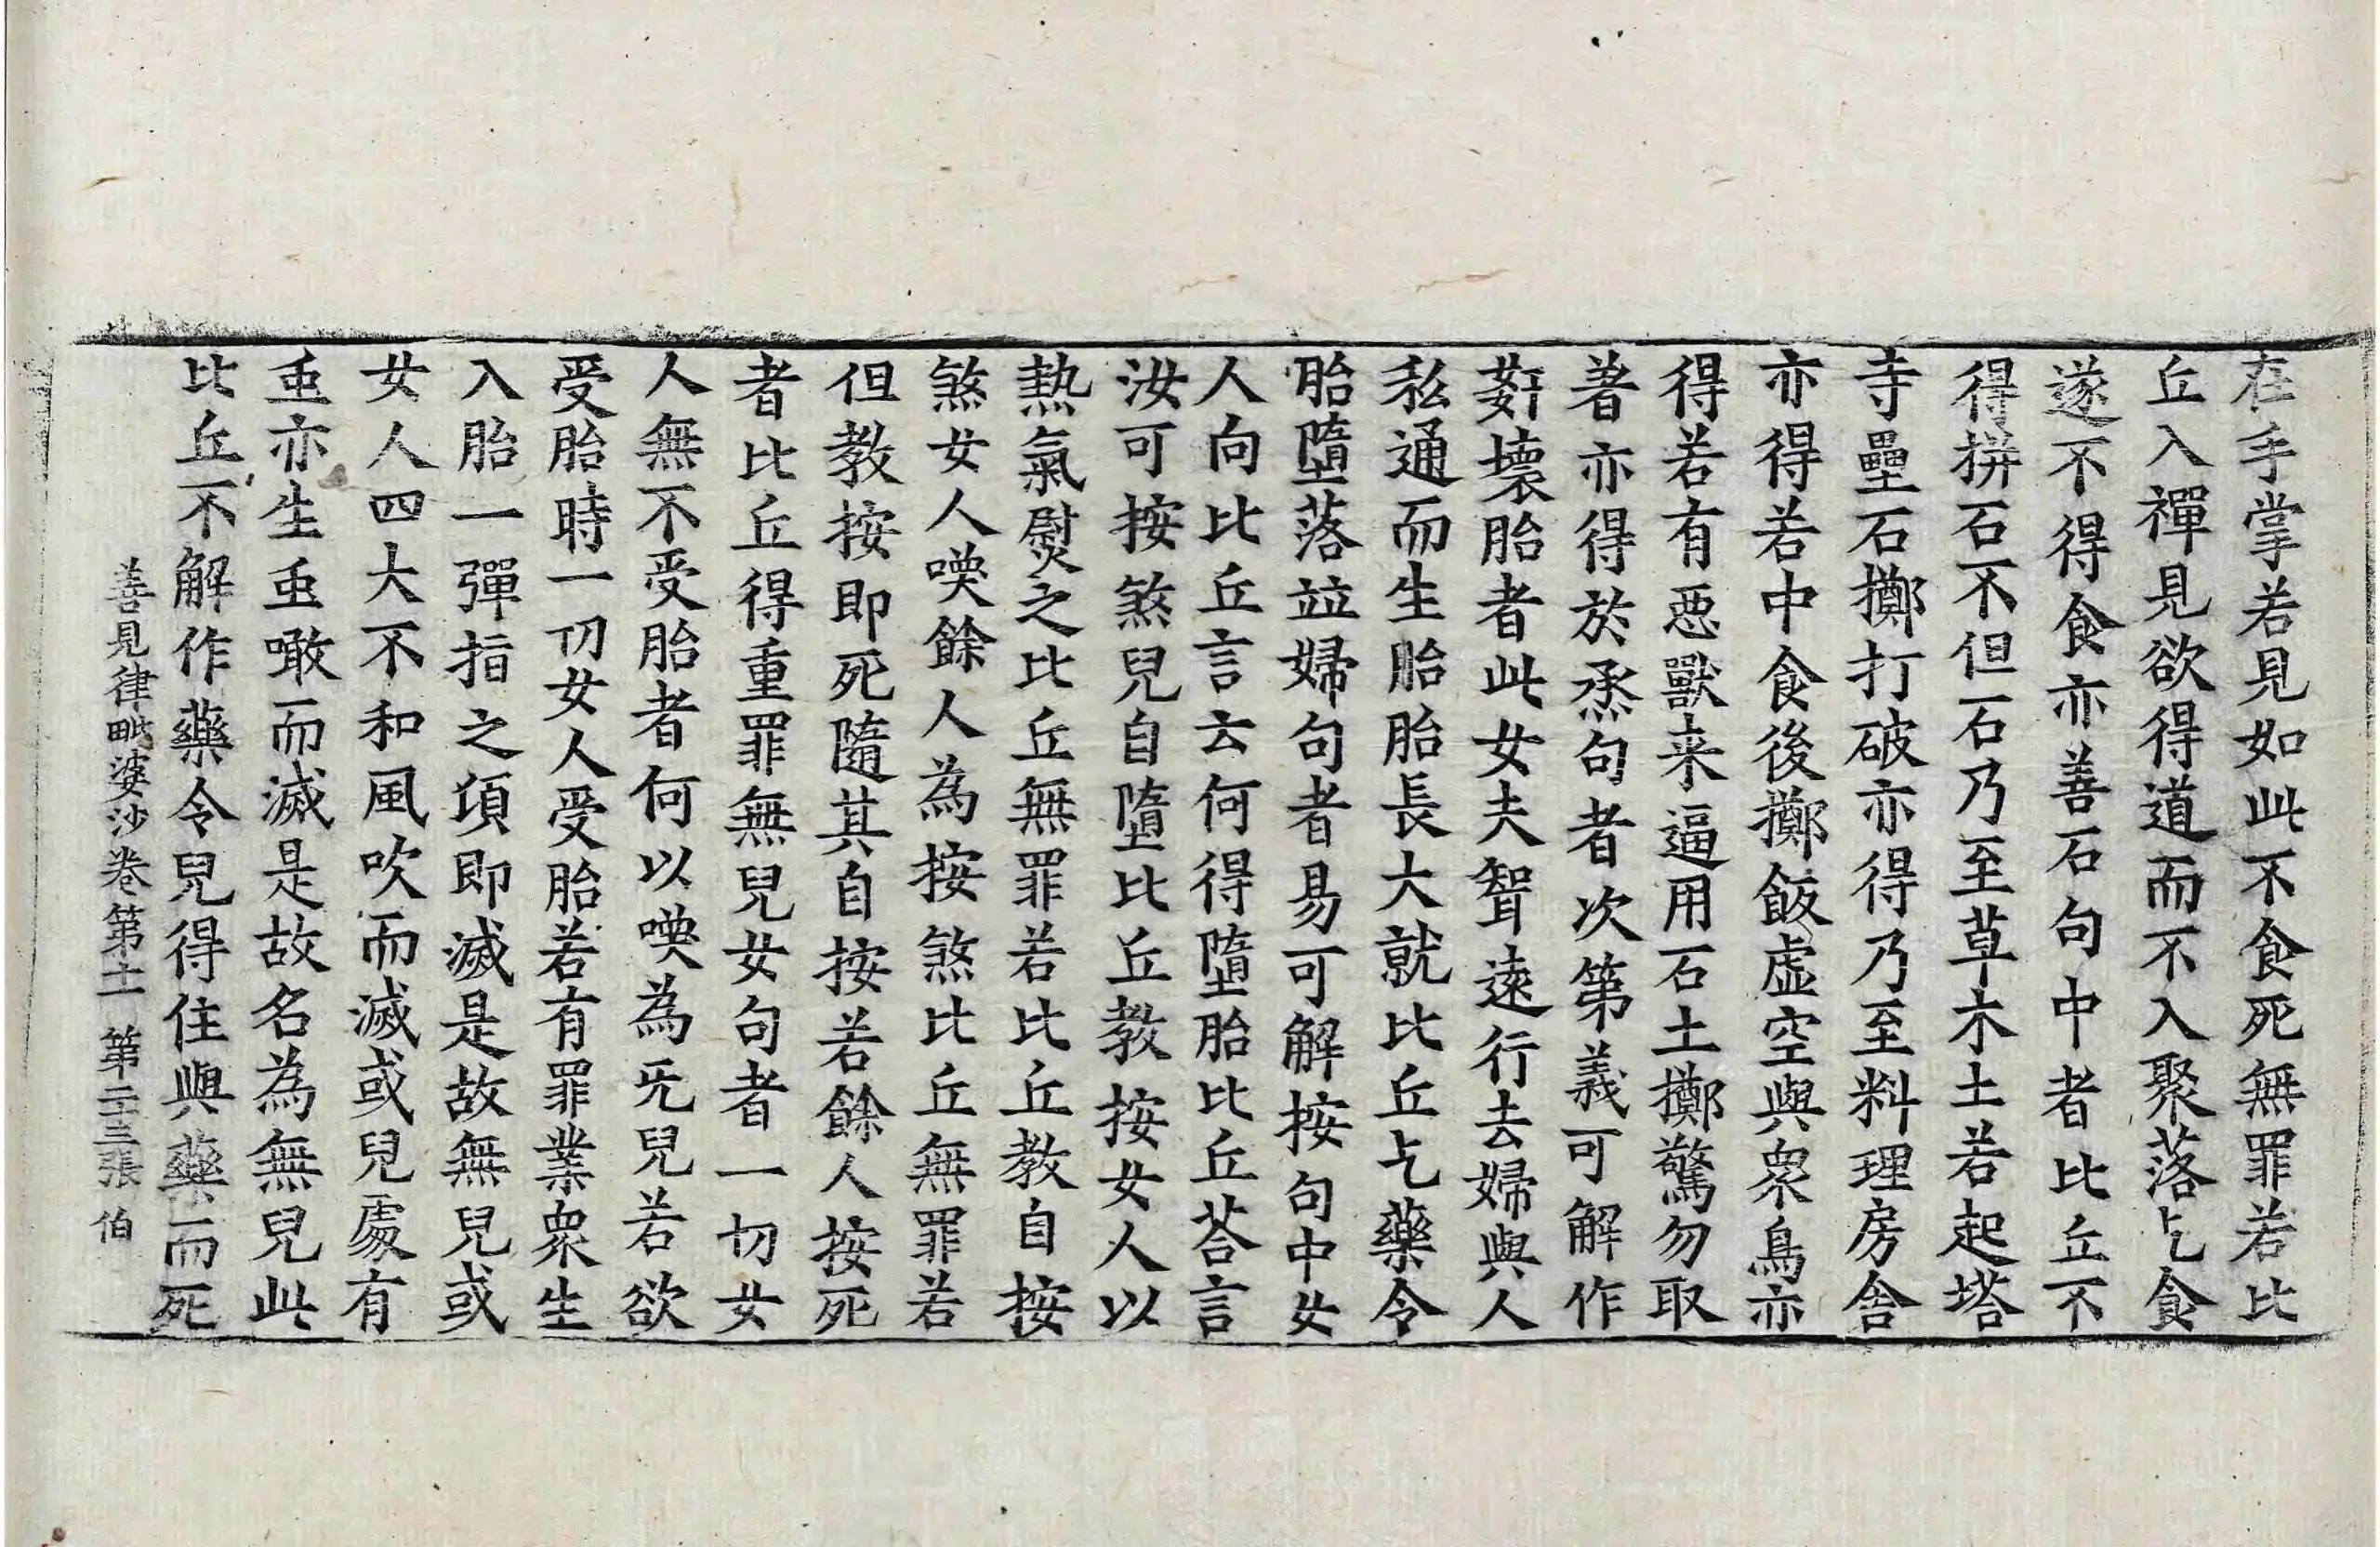 在手掌若見如此不食死無罪若比
丘入禪見欲得道而不入聚落乞食
遂不得食亦善石句中者比丘不
得拼石不但石乃至草木土若起塔
寺壘石擲打破亦得乃至料理房舍
亦得若中食後擲飯虛空與衆鳥亦
得若有惡獸来逼用石土擲驚勿取
著亦得於烝句者次第義可解作
㜸壞胎者此女夫聟遠行去婦與人
私通而生胎胎長大就比丘乞藥令
胎墮落竝婦句者易可解按句中女
人向比丘言云何得墮胎比丘荅言
汝可按煞兒自墮比丘教按女人以
熱氣熨之比丘無罪若比丘教自按
煞女人喚餘人為按煞比丘無罪若
但教按即死隨其自按若餘人按死
者比丘得重罪無兒女句者一切女
人無不受胎者何以喚為无兒若欲
受胎時一切女人受胎若有罪業衆生
入胎一彈指之頃即滅是故無兒或
女人四大不和風吹而滅或兒處有
䖝亦生䖝噉而滅是故名為無兒此
比丘不解作藥令兒得住與藥而死
善見律毗婆沙卷第十一 第二十三張 伯